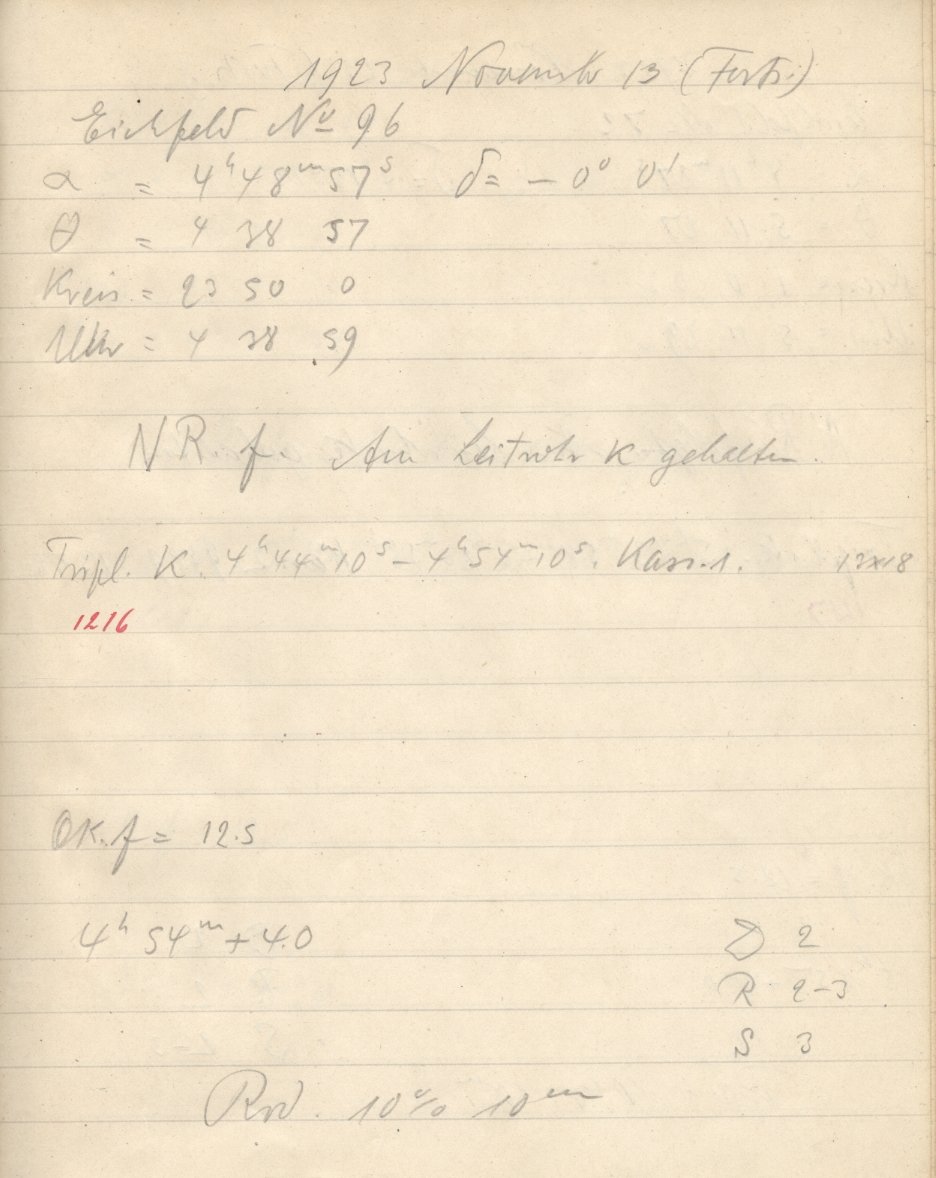 1923 November 13 (Forts.)
Eichfeld No 96
α = 4h 48m 57s δ = - 0° 0'
θ = 4 38 57
Kreis = 23 50 0
Uhr = 4 38 59
N R. f. Am Leitrohr K gehalten.
Tripl. K. 4h 44m 10s - 4h 54m 10s. Kass. 1. 13x18
1216
OK. f = 12.5
4h 54m + 4.0 D 2
R 2-3
S 3
Rod. 10% 10m